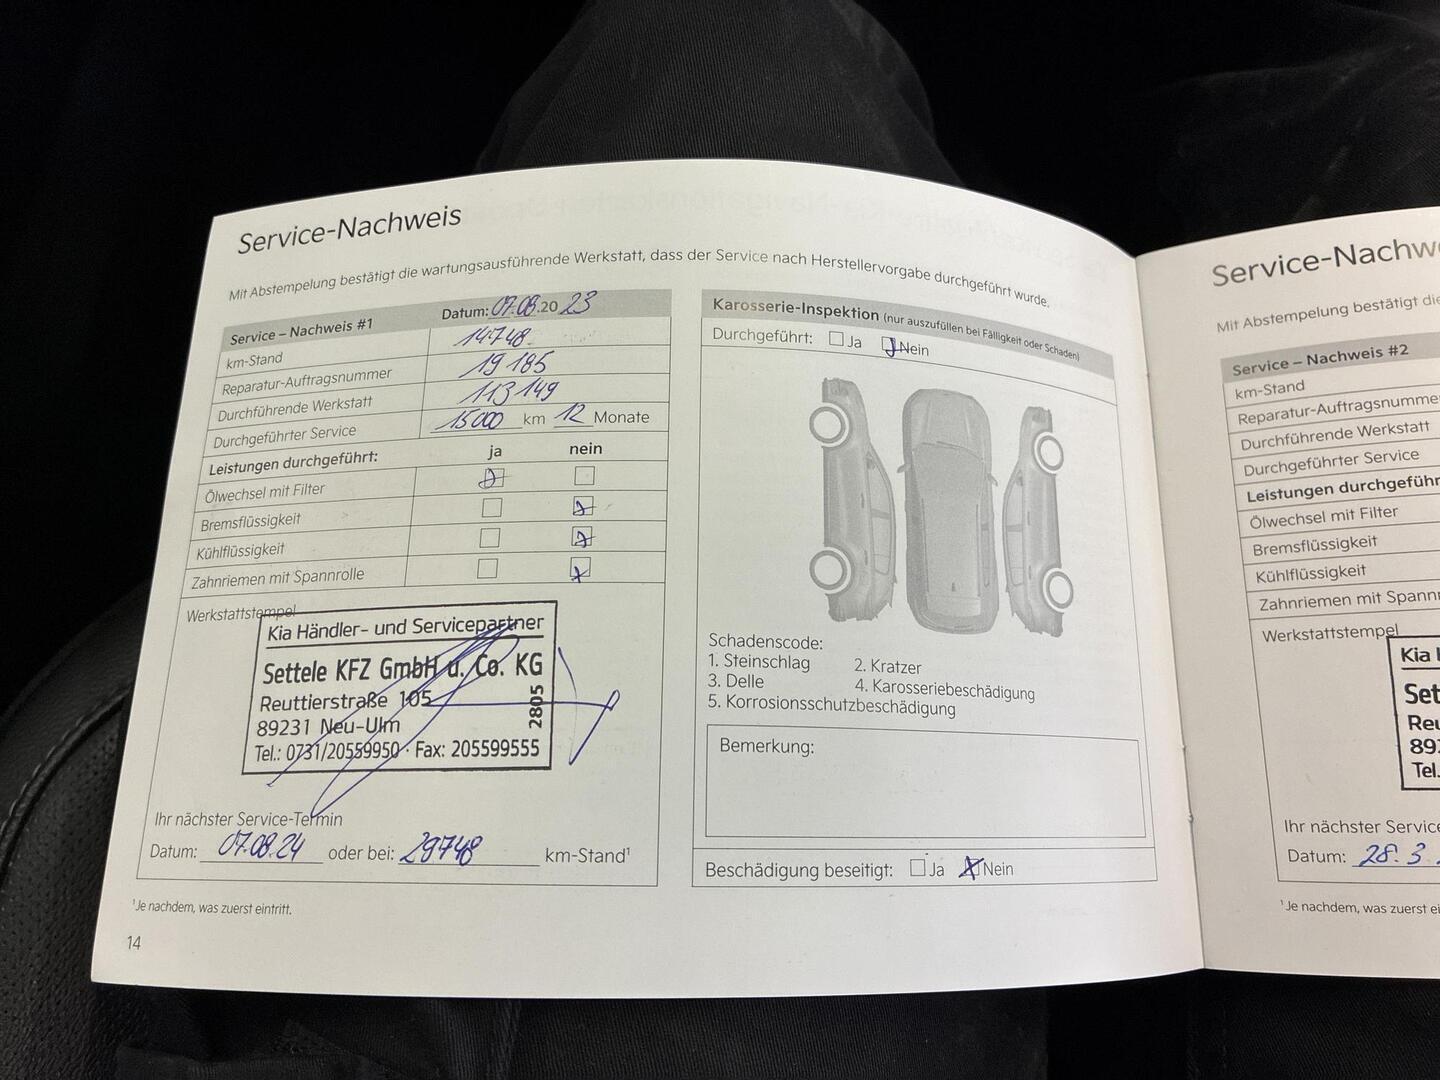 Service-Nachweis
Mit Abstempelung bestätigt die wartungsausführende Werkstatt, dass der Service nach Herstellervorgabe durchgeführt wurde.
Service – Nachweis #1 Datum: 07.08.2023
km-Stand 14.748
Reparatur-Auftragsnummer 19 185
Durchführende Werkstatt 113 149
Durchgeführter Service 15000 km 12 Monate
Leistungen durchgeführt: ja nein
Ölwechsel mit Filter
Bremsflüssigkeit
Kühlflüssigkeit
Zahnriemen mit Spannrolle
Werkstattstempel
Kia Händler- und Servicepartner
Settele KFZ GmbH u. Co. KG
Reuttierstraße 105
89231 Neu-Ulm
Tel.: 0731/20559950 · Fax: 205599555
2805
Ihr nächster Service-Termin
Datum: 07.08.24 oder bei: 29748 km-Stand¹
¹Je nachdem, was zuerst eintritt.
14
Karosserie-Inspektion (nur auszufüllen bei Fälligkeit oder Schaden)
Durchgeführt: Ja Nein
Schadenscode:
1. Steinschlag 2. Kratzer
3. Delle 4. Karosseriebeschädigung
5. Korrosionsschutzbeschädigung
Bemerkung:
Beschädigung beseitigt: Ja Nein
Service-Nachw
Mit Abstempelung bestätigt die
Service – Nachweis #2
km-Stand
Reparatur-Auftragsnumme
Durchführende Werkstatt
Durchgeführter Service
Leistungen durchgeführ
Ölwechsel mit Filter
Bremsflüssigkeit
Kühlflüssigkeit
Zahnriemen mit Spann
Werkstattstempel
Kia
Set
Reu
892
Tel.
Ihr nächster Service
Datum: 28. 3.
¹Je nachdem, was zuerst ei